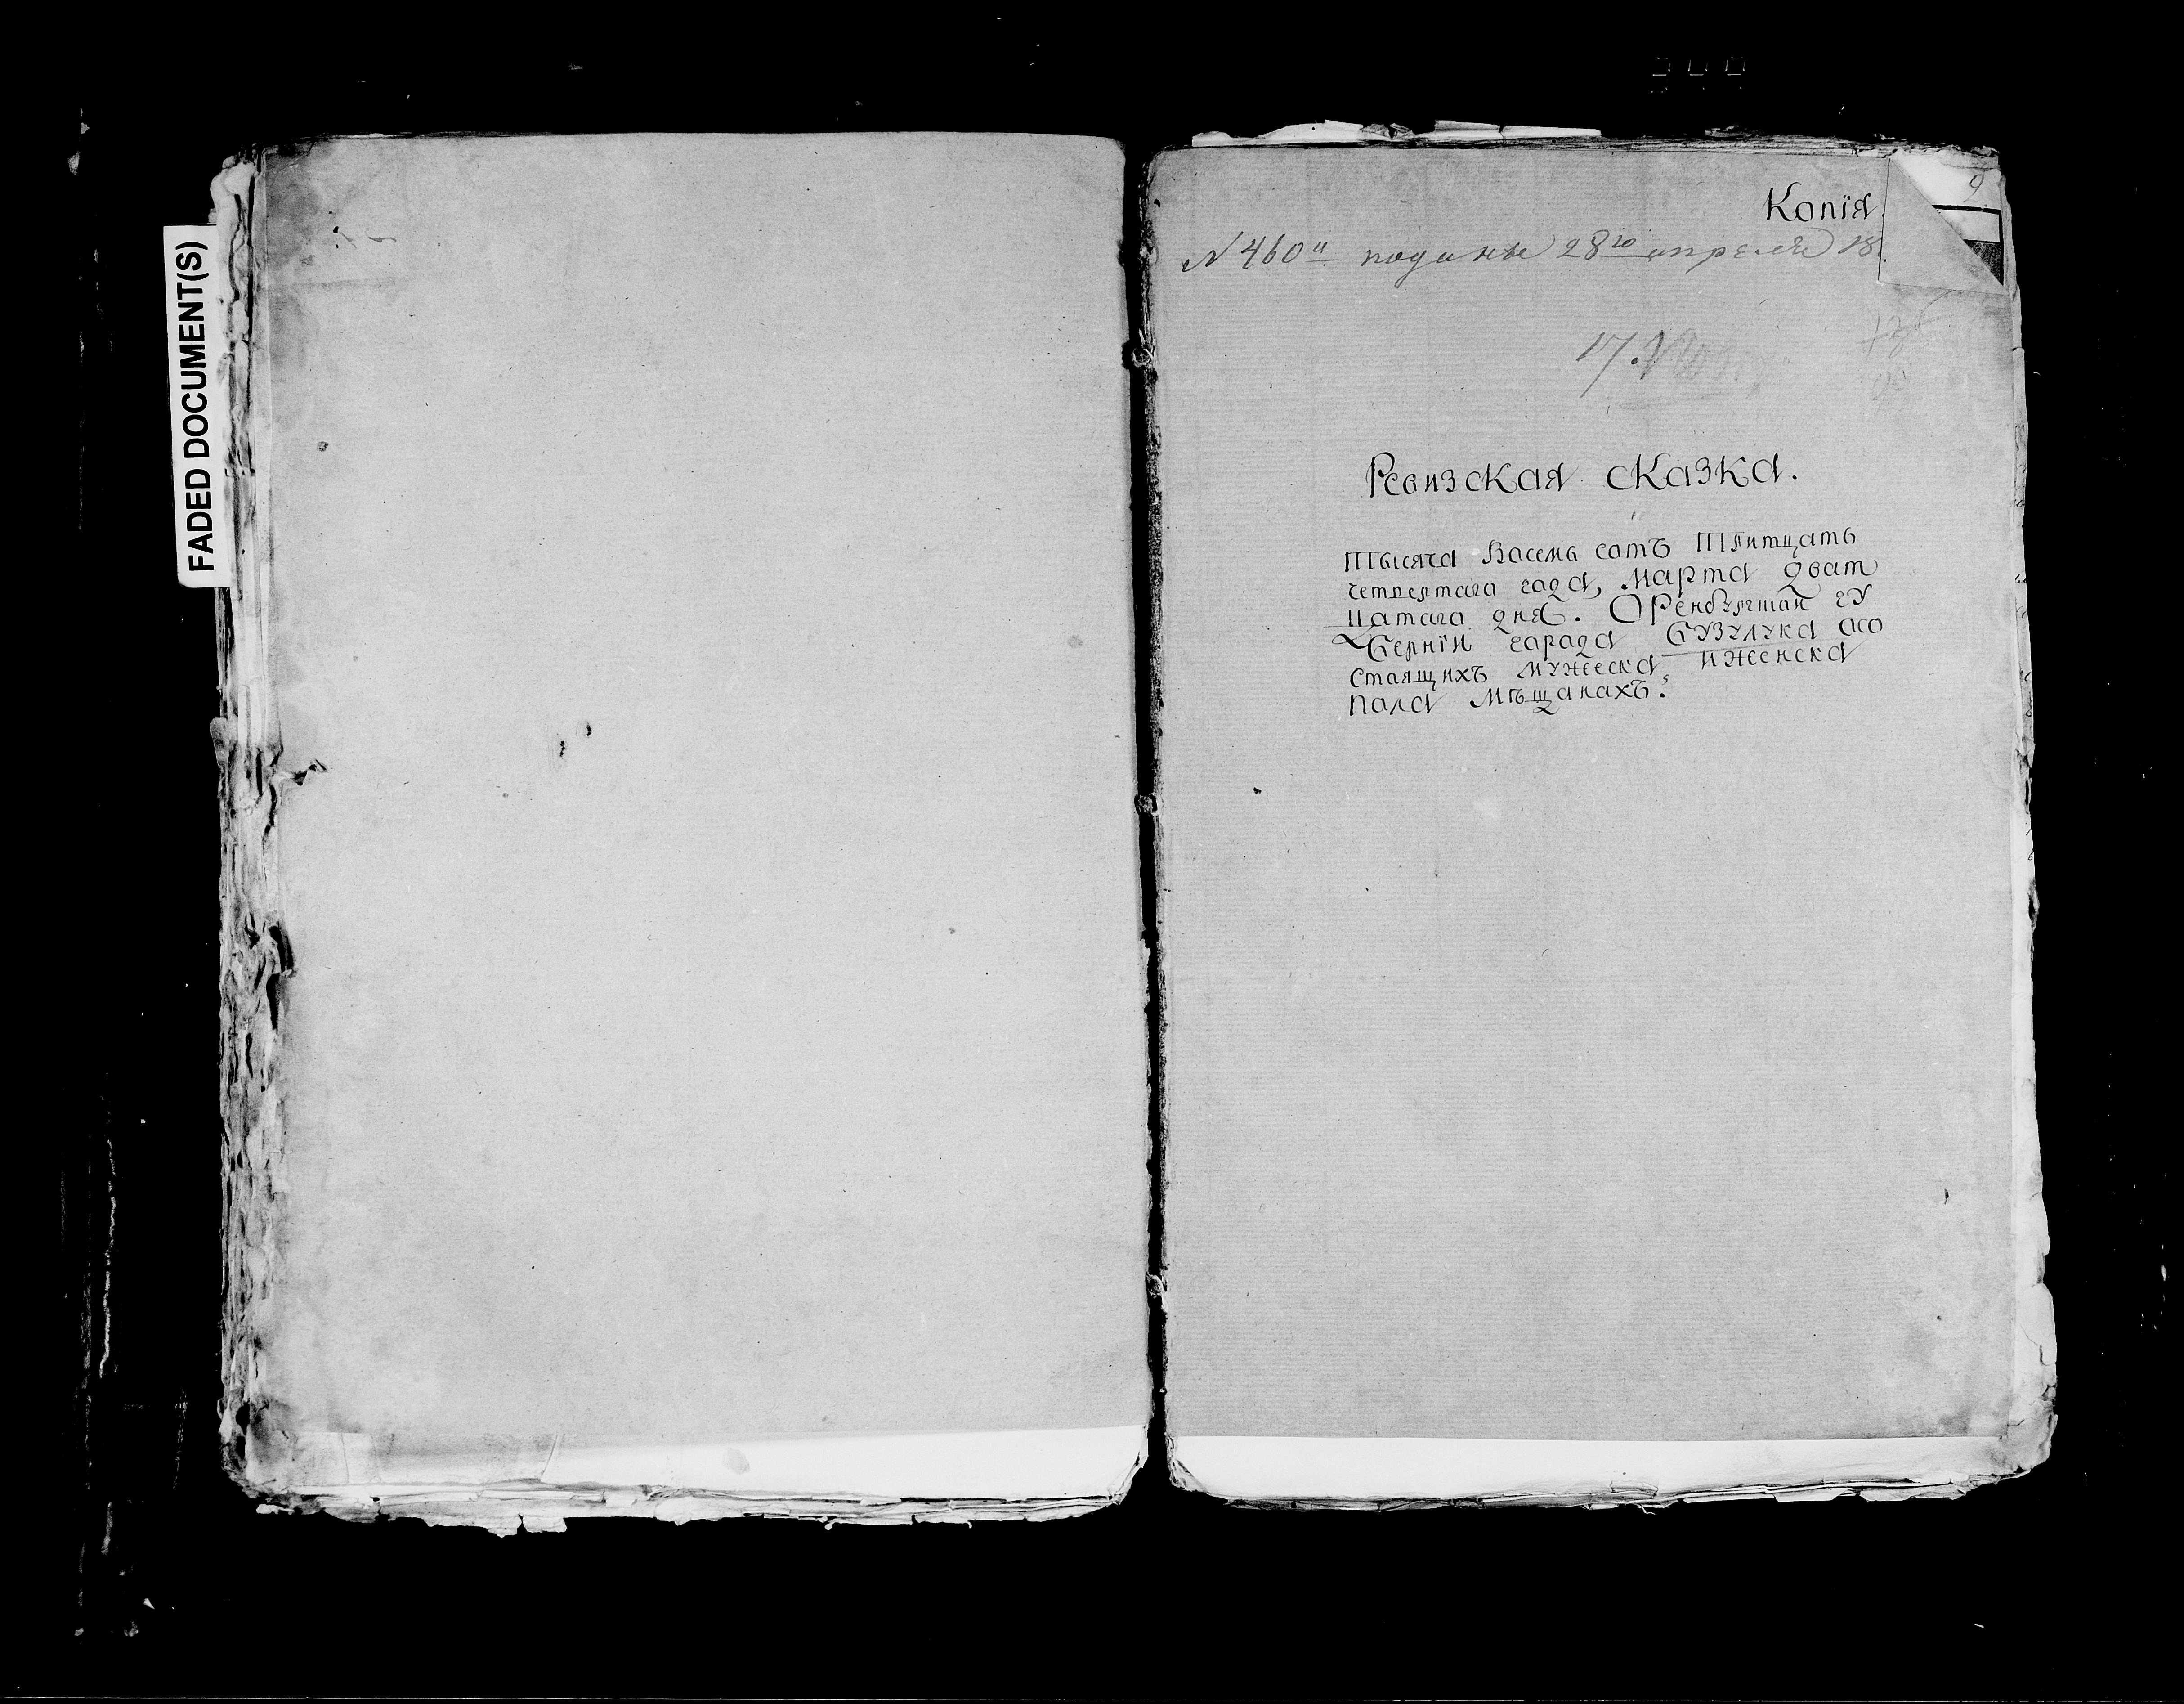 FADED DOCUMENT(S)
9
Копія
N 460й поданы 28го апреля 18
17.
Ревизская сказка.
Тысяча Васемь сотъ Тритцать
четвертага года, Марта дват
цатага дня. Оренбургшай гу
берніи гарада Бузулука асо
стаящихъ мужеска иженска
пала Мѣщанахъ: